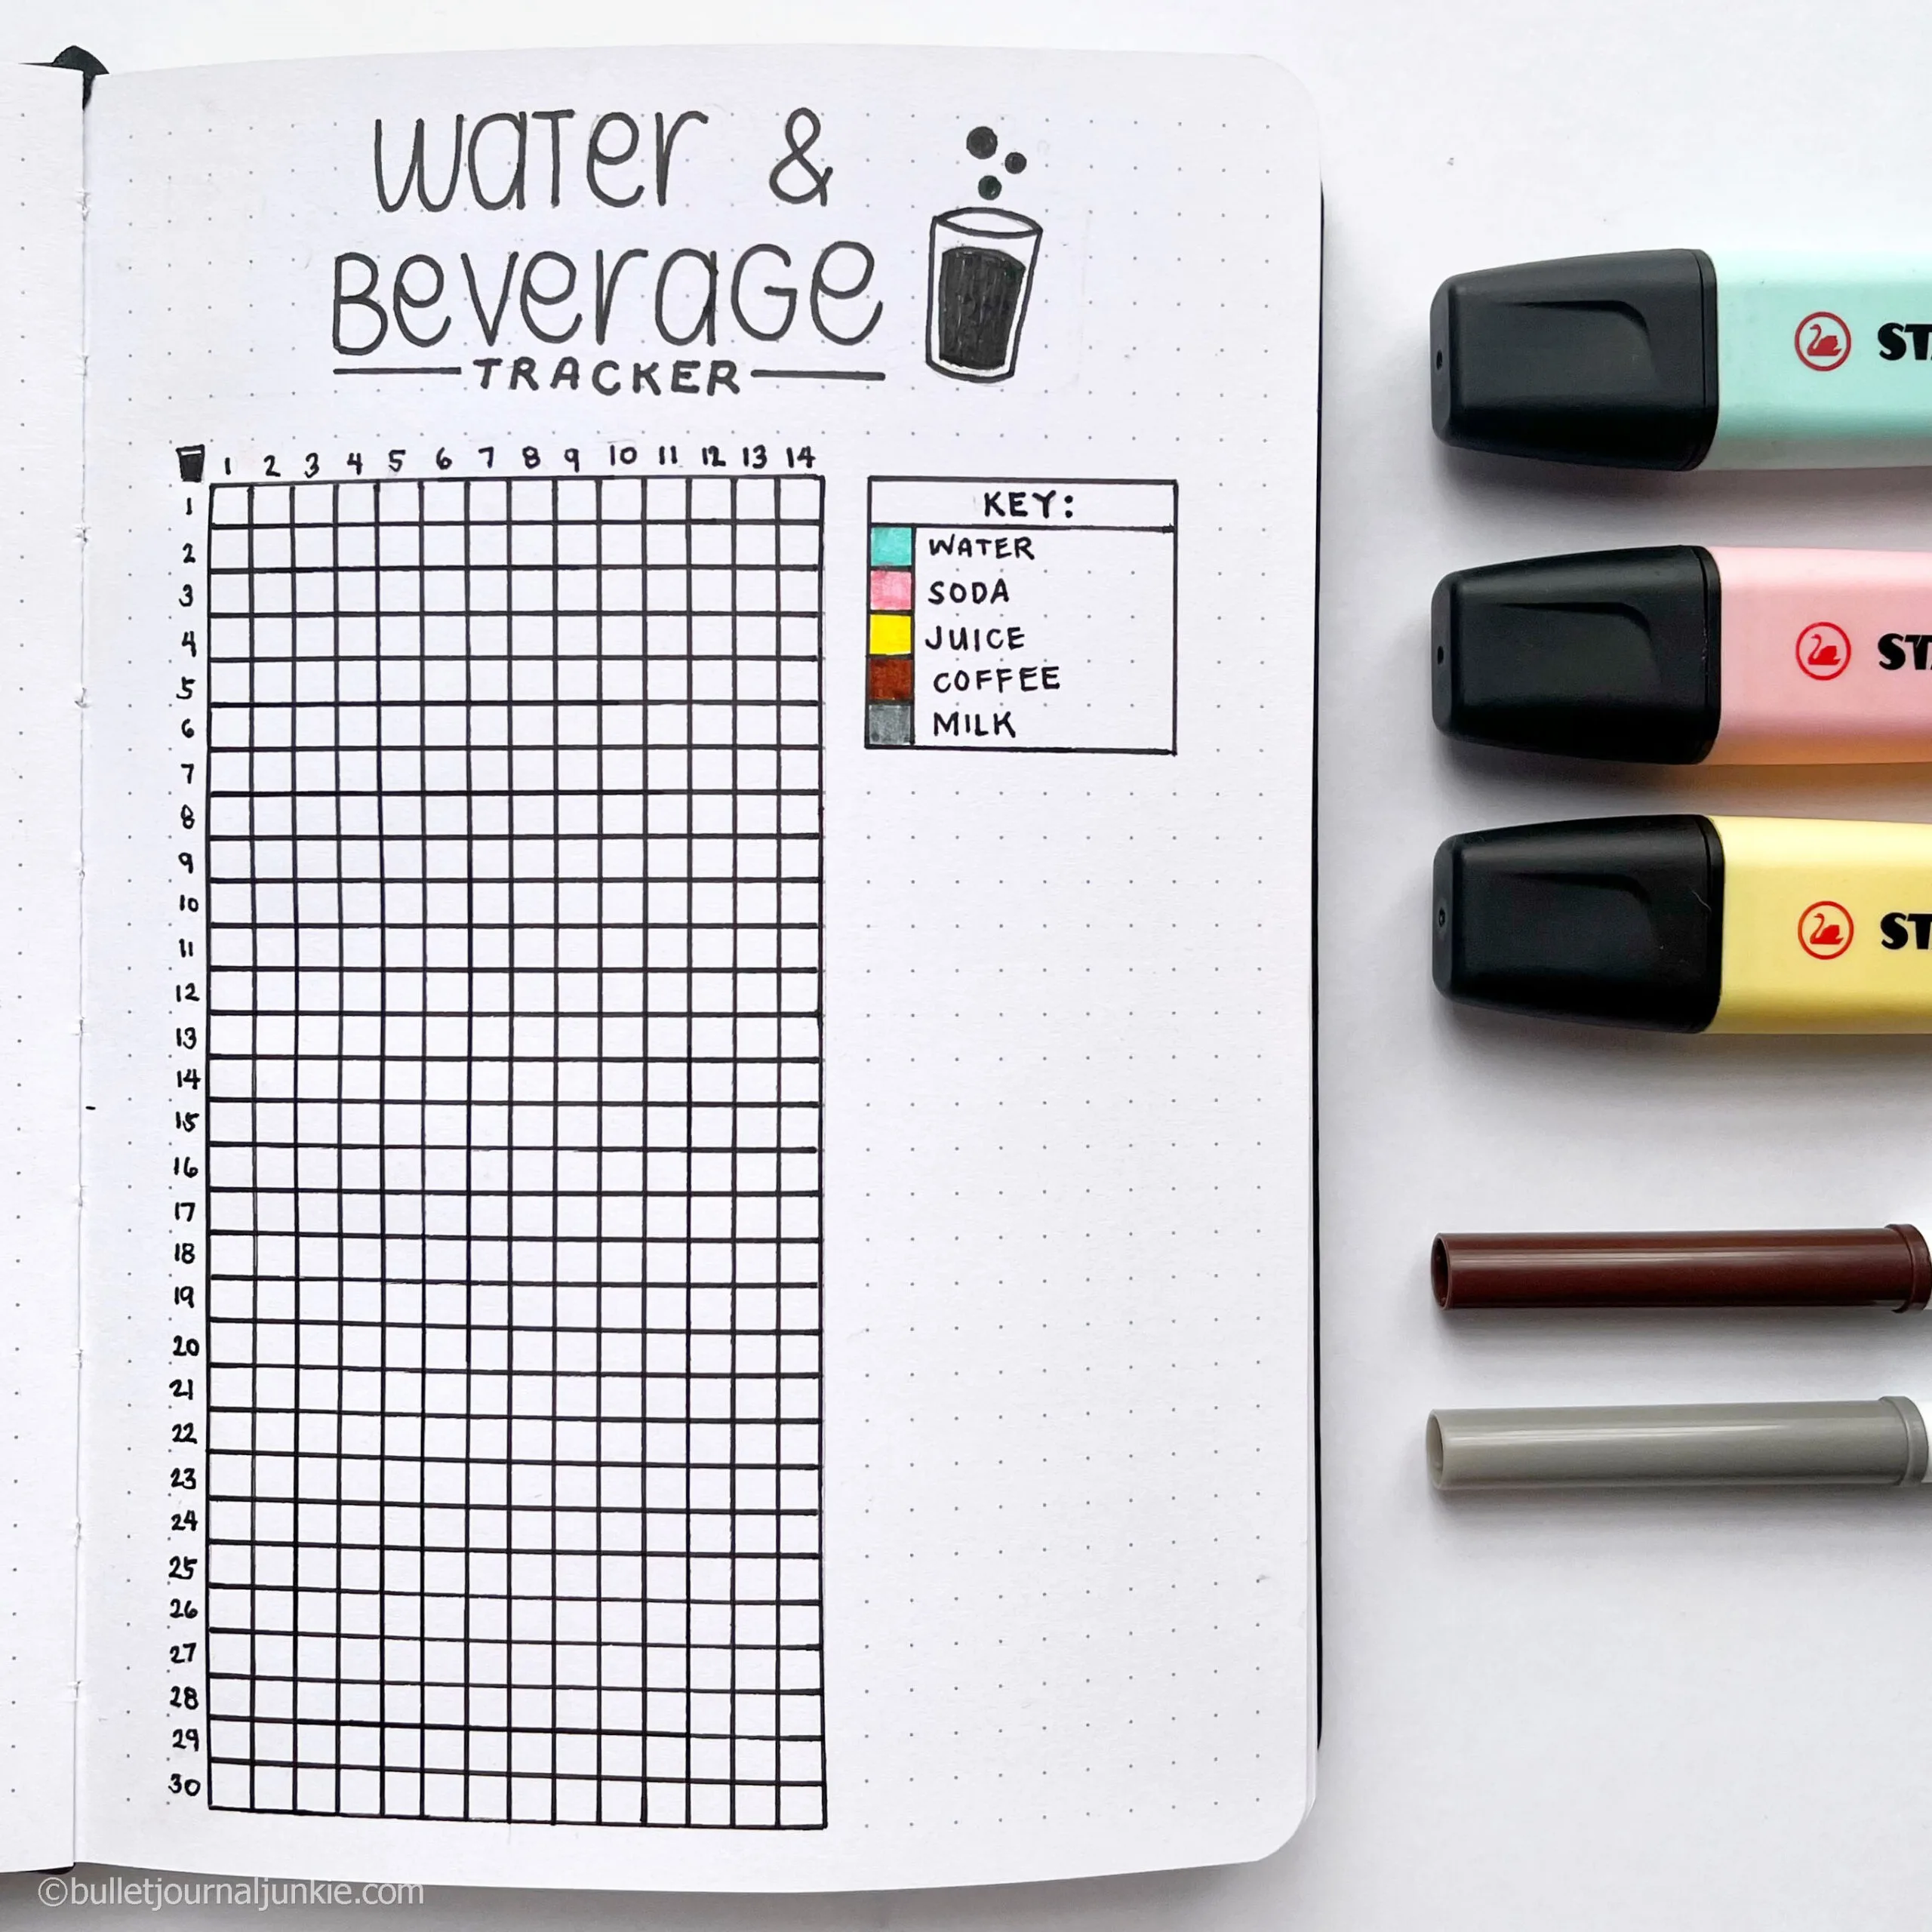 WaTer &
BeveraGe
TRACKER
1 2 3 4 5 6 7 8 9 10 11 12 13 14
1
2
3
4
5
6
7
8
9
10
11
12
13
14
15
16
17
18
19
20
21
22
23
24
25
26
27
28
29
30
KEY:
WATER
SODA
JUICE
COFFEE
MILK
©bulletjournaljunkie.com